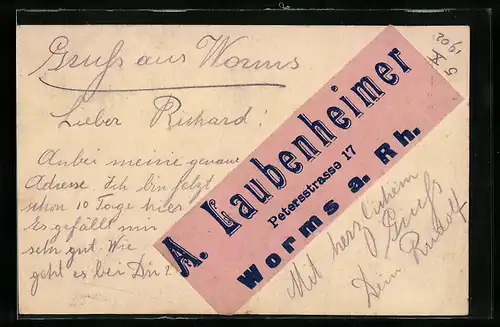 Gruß aus Worms
5 X
1902
Lieber Richard!
Anbei meine genaue
Adresse. Ich bin jetzt
schon 10 Tage hier
Es gefällt mir
sehr gut. Wie
geht es bei Dir?
A. Laubenheimer
Petersstrasse 17
Worms a. Rh.
Mit herzlichem
Gruß
Dein Rudolf